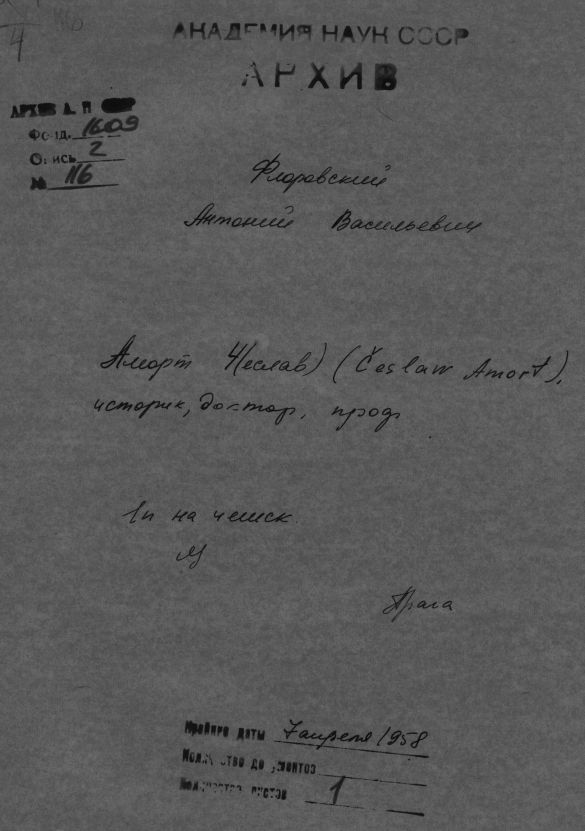 4
116
АКАДЕМИЯ НАУК СССР
АРХИВ
АРХИВ А. Н СССР
Фонд. 1609
Опись 2
№ 116
Флоровский
Антоний Васильевич
Аморт Ч(еслав) (Česlaw Amort),
историк, доктор, проф
1п на чешск.
Прага
Крайние даты 7 апреля 1958
Количество документов
Количество листов 1